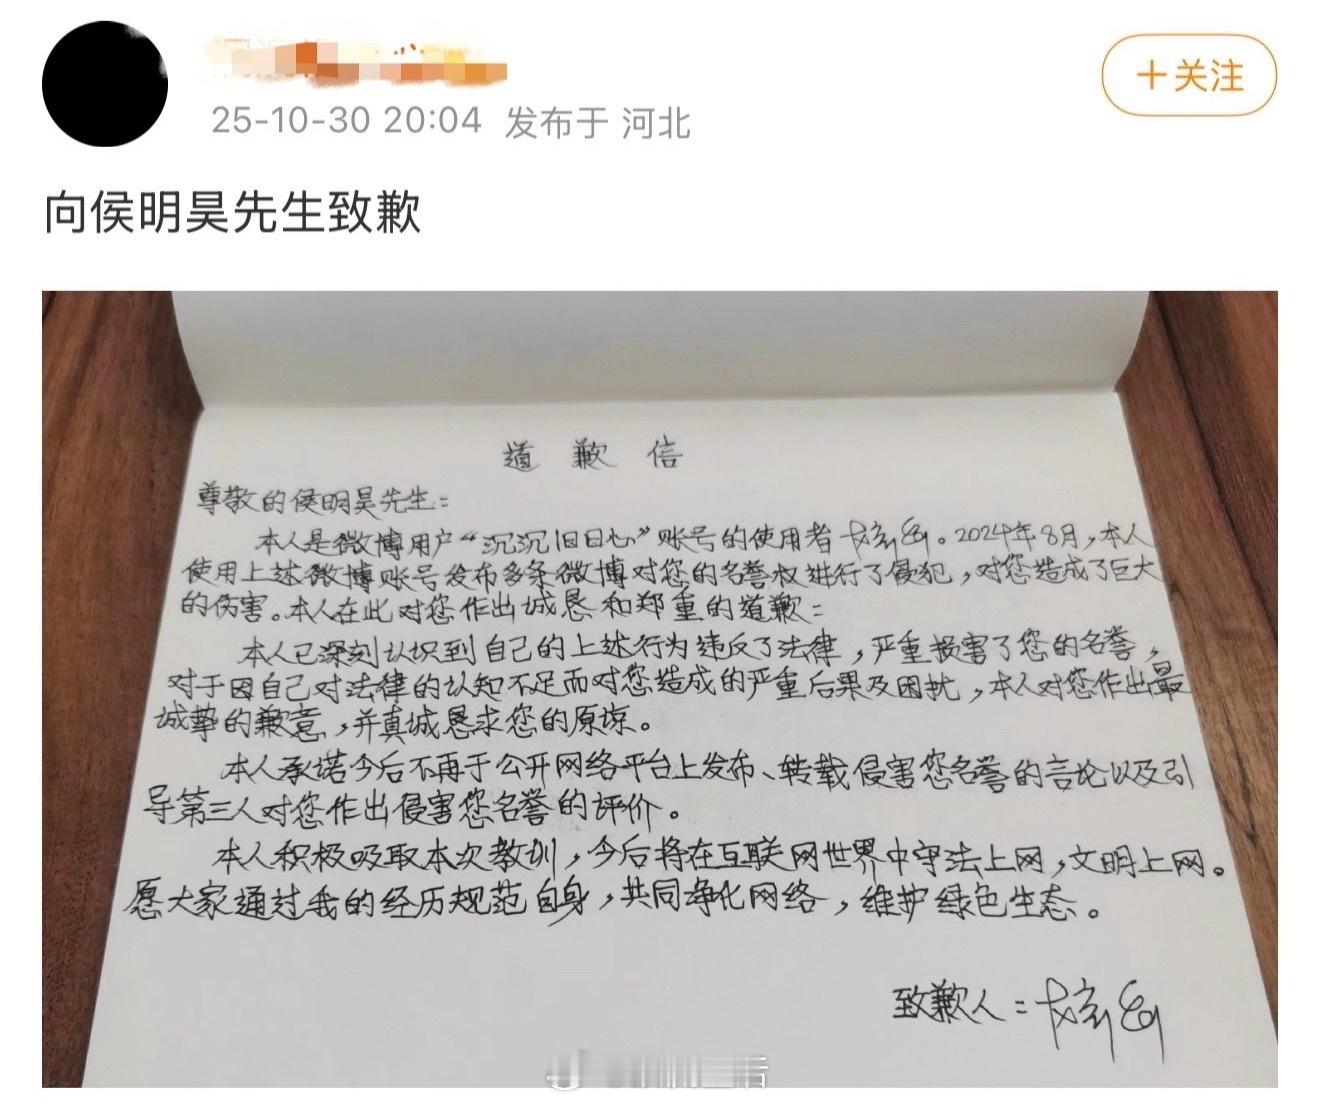 25-10-30 20:04 发布于 河北
+关注
向侯明昊先生致歉
道 歉 信
尊敬的侯明昊先生：
本人是微博用户“沉沉旧日心”账号的使用者 。2024年8月，本人
使用上述微博账号发布多条微博对您的名誉权进行了侵犯，对您造成了巨大
的伤害。本人在此对您作出诚恳和郑重的道歉：
本人已深刻认识到自己的上述行为违反了法律，严重损害了您的名誉，
对于因自己对法律的认知不足而对您造成的严重后果及困扰，本人对您作出最
诚挚的歉意，并真诚恳求您的原谅。
本人承诺今后不再于公开网络平台上发布、转载侵害您名誉的言论以及引
导第三人对您作出侵害您名誉的评价。
本人积极吸取本次教训，今后将在互联网世界中守法上网，文明上网。
愿大家通过我的经历规范自身，共同净化网络，维护绿色生态。
致歉人：